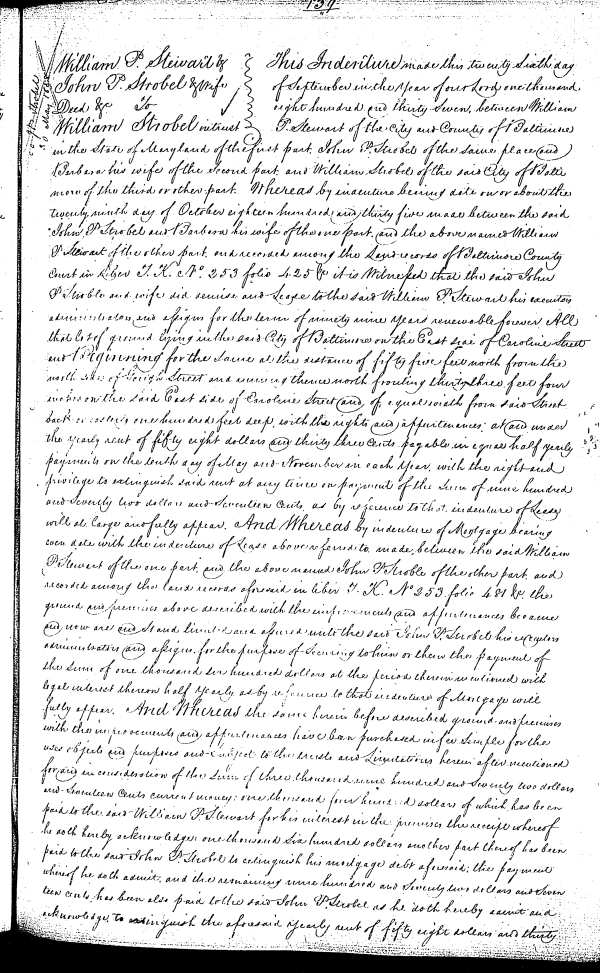 139
William P. Stewart &
John P. Strobel & Wife
Deed, &c To
William Strobel in trust
30 May 1838
This Indenture made this twenty sixth day
of September in the Year of our Lord, one thousand
eight hundred and thirty seven, between William
P. Stewart of the City and County of Baltimore
in the State of Maryland of the first part, John P. Strobel of the same place and
Barbara his wife of the second part, and William Strobel of the said City of Balti
more of the third or other part. Whereas by indenture bearing date on or about the
twenty ninth day of October eighteen hundred and thirty five made between the said
John P. Strobel and Barbara his wife of the one part, and the above named William
P. Stewart of the other part, and recorded among the Land records of Baltimore County
Court in Liber T. K. No. 253 folio 425 &c it is Witnessed that the said John
P. Stroble and wife did demise and Lease to the said William P. Stewart his executors
administrators and assigns for the term of ninety nine Years renewable forever All
that lot of ground lying in the said City of Baltimore on the East side of Caroline Street
and Beginning for the same at the distance of fifty five feet north from the
north side of Street and running thence north fronting thirty three feet four
inches on the said East side of Caroline Street and, of equal width from said Street
back easterly one hundred feet deep, with the rights and appurtenances, at and under
the yearly rent of fifty eight dollars and thirty three Cents payable in equal half yearly
payments on the tenth day of May and November in each Year, with the right and
privilege to extinguish said rent at any time on payment of the Sum of nine hundred
and Seventy two dollars and Seventeen Cents, as by reference to that indenture of Lease
will at large and fully appear. And Whereas by indenture of Mortgage bearing
even date with the indenture of Lease above referred to, made, between the said William
P. Stewart of the one part, and the above named John P. Stroble of the other part, and
recorded among the land records aforesaid in liber T. K. No 253 folio 481 &c. the
ground and premises above described with the improvements and appurtenances became
and now are and Stand limited and assured unto the said John P. Strobel his executors
administrators and assigns, for the purpose of Securing to him or them the payment of
the Sum of one thousand six hundred dollars at the period therein mentioned with
legal interest thereon half Yearly as by reference to that indenture of Mortgage will
fully appear. And Whereas the same herein before described ground and premises
with the improvements and appurtenances have been purchased in fee Simple for the
uses objects and purposes and Subject to the trusts and Limitations herein after mentioned
for and in consideration of the Sum of three thousand nine hundred and Seventy two dollars
and Seventeen Cents current money: one thousand four hundred dollars of which has been
paid to the said William P. Stewart for his interest in the premises the receipt whereof
he doth hereby acknowledge: one thousand Six hundred dollars another part thereof has been
paid to the said John P. Strobel to extinguish his mortgage debt aforesaid; the payment
whereof he doth admit, and the remaining nine hundred and Seventy two dollars and Seven
teen Cents, has been also paid to the said John P. Strobel as he doth hereby admit and
acknowledge, to extinguish the aforesaid Yearly rent of fifty eight dollars and thirty